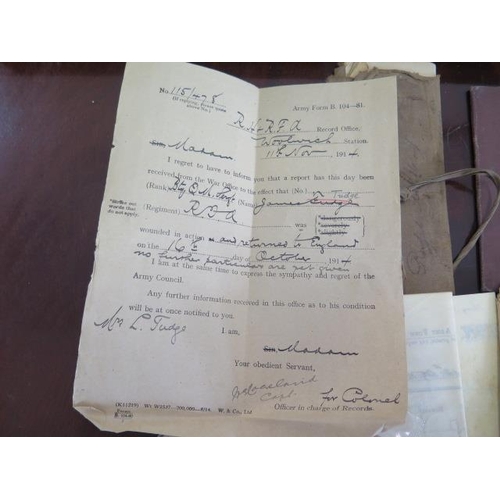 No. 115/475
(If replying, please quote above No.)
Army Form B. 104—81.
R.H & R.F.A Record Office,
Woolwich Station.
11th Nov 1914
Sir, Madam
I regret to have to inform you that a report has this day been
received from the War Office to the effect that (No.)
(Rank) Bty Q. M. Sergt (Name) Tudge
(Regiment) R.F.A was
*Strike out words that do not apply.
wounded in action and returned to England
on the 16th day of October 1914
no further particulars are yet given
I am at the same time to express the sympathy and regret of the
Army Council.
Any further information received in this office as to his condition
will be at once notified to you.
Mrs L. Tudge
I am,
Sir, Madam
Your obedient Servant,
Capt.
for Colonel
Officer in charge of Records.
200,000—8/14 W. & Co., Ltd